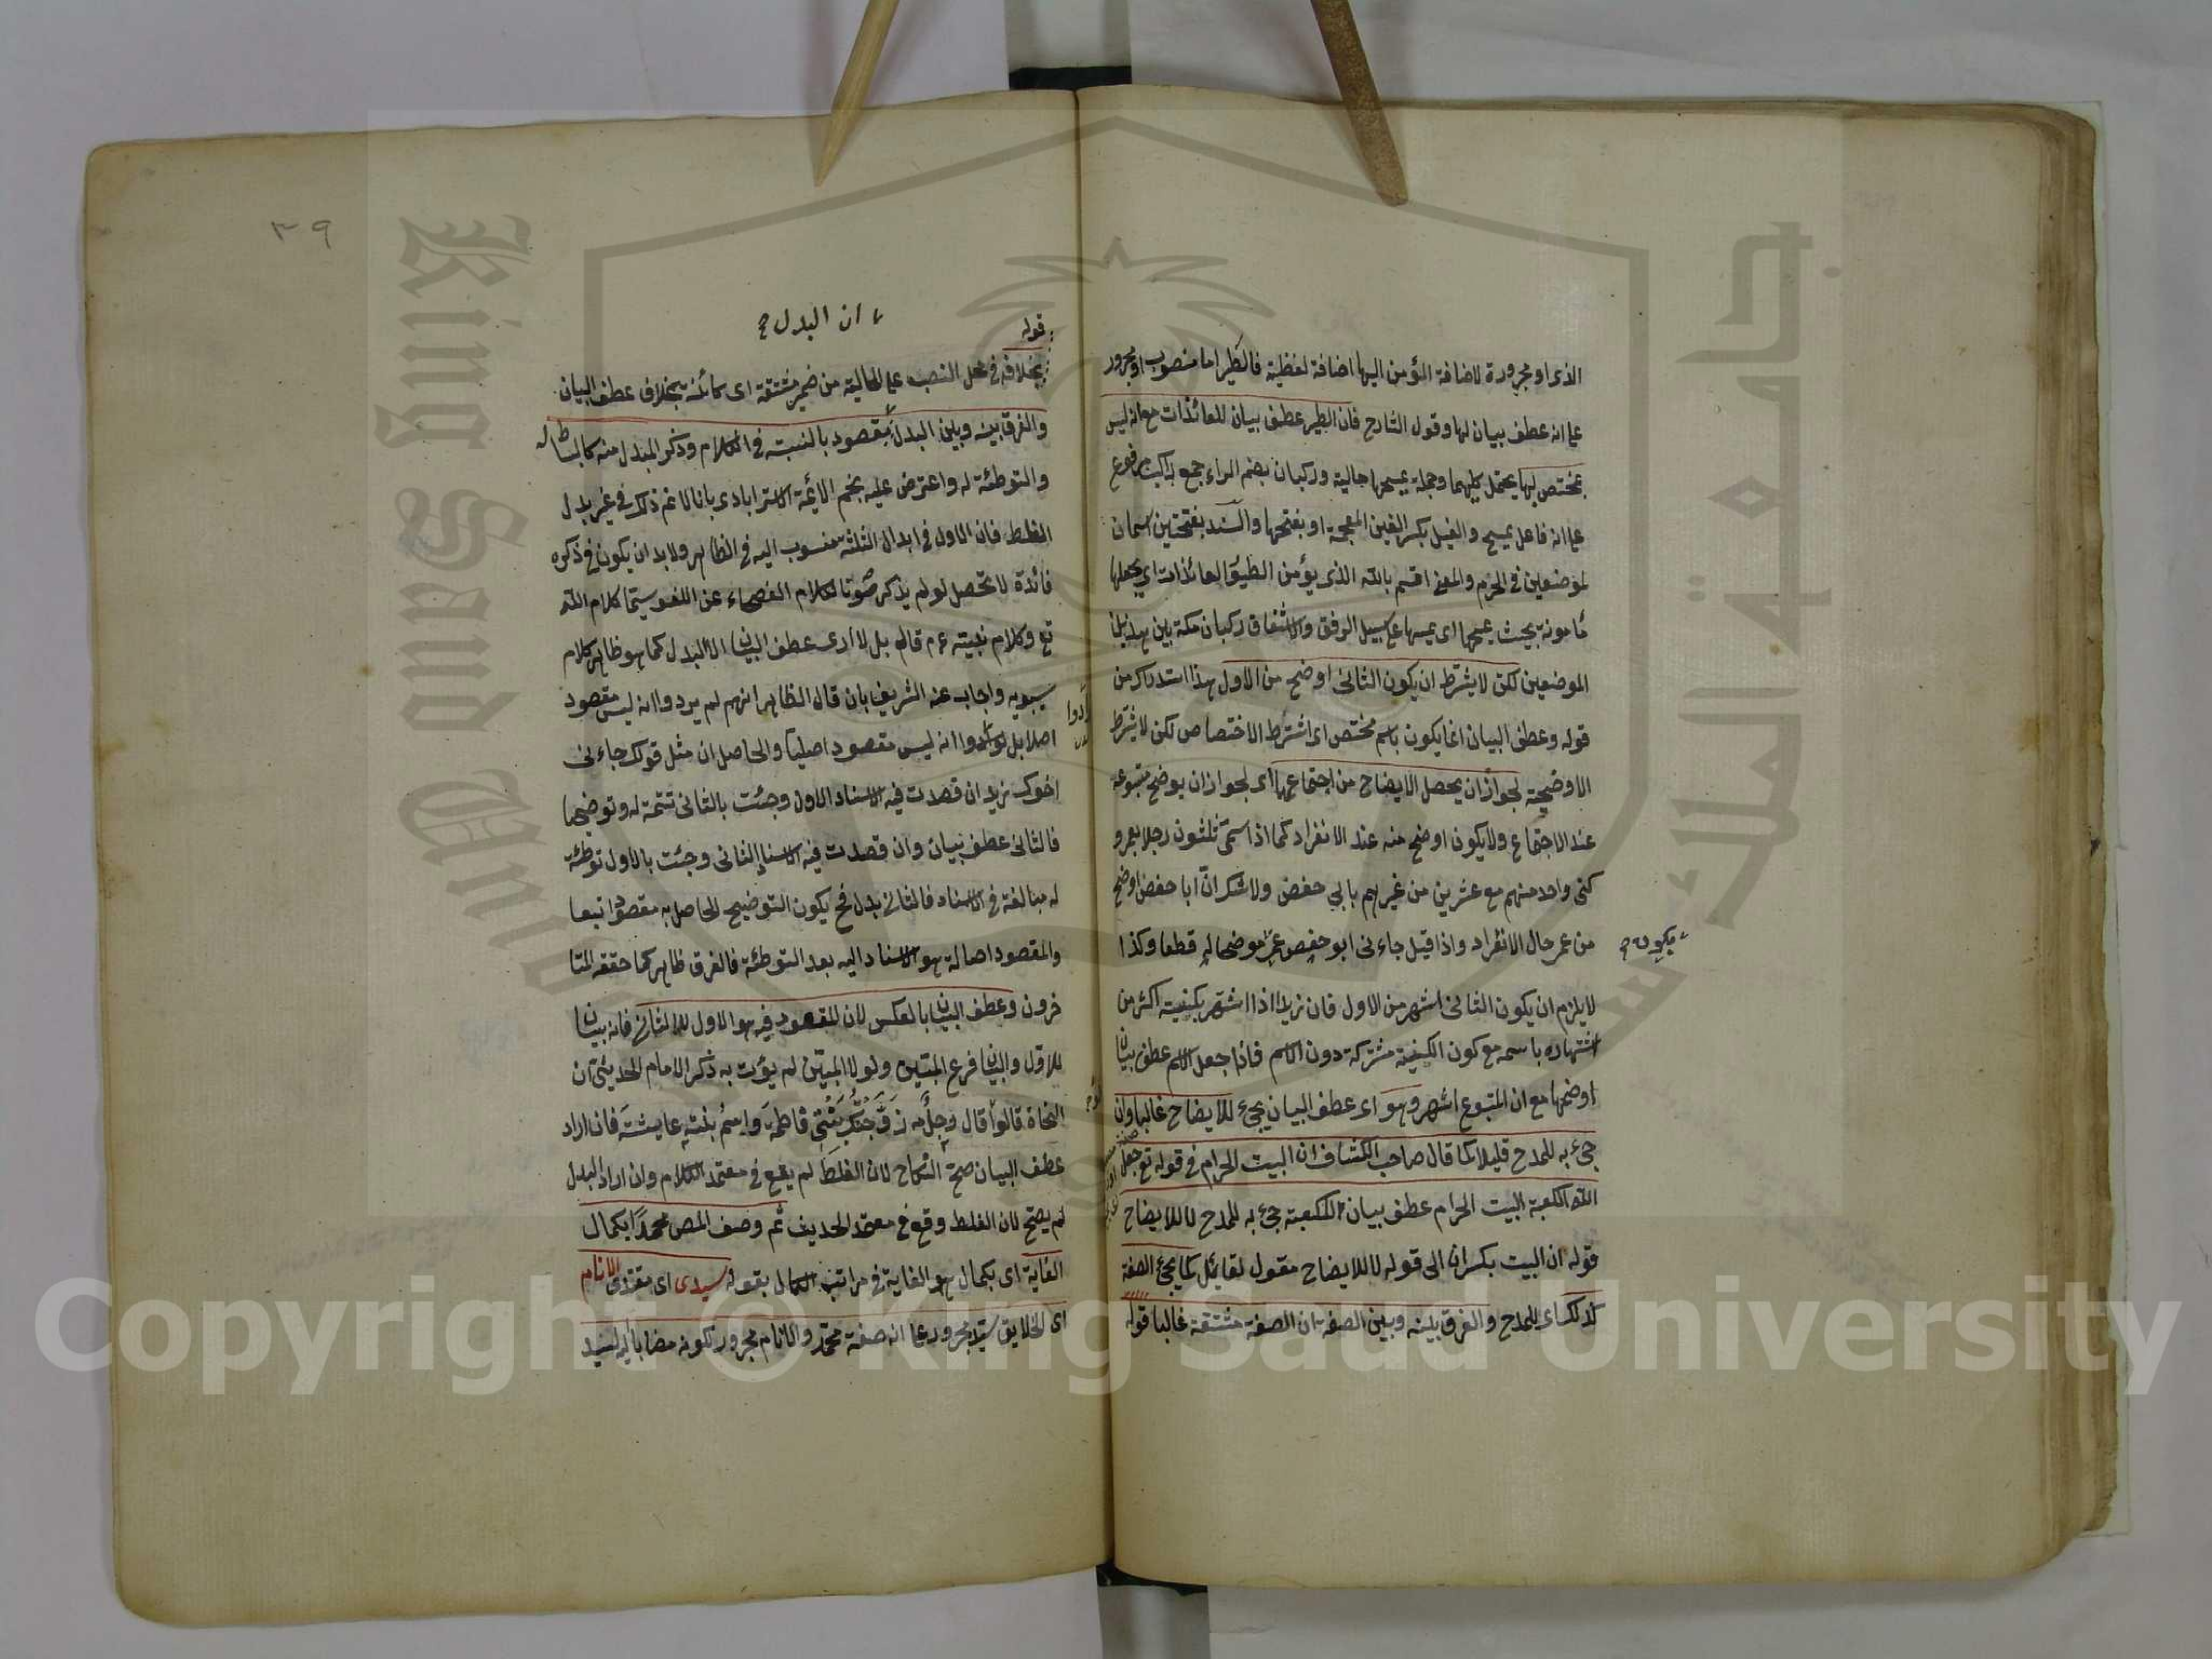 الذى او مجرورة لاضافة المؤمن اليها اضافة لفظية فالطير اما منصوب او مجرور
على انه عطف بيان لها وقول الشارح فان الطير عطف بيان للعائذات مع انه ليس
بمختص بها يحتمل كليهما وجملة يمسحها حالية وركبان بضم الراء جمع راكب مرفوع
على انه فاعل يمسح والغيل بكسر الغين المعجمة او بفتحها والسند بفتحتين اسمان
لموضعين فى الحرم والمعنى اقسم بالله الذى يؤمن الطيور العائذات اى يجعلها
مأمونة بحيث يمسحها اى يمسها على سبيل الرفق والاشفاق ركبان مكة بين هذين
الموضعين لكن لا يشترط ان يكون الثانى اوضح من الاول هذا استدراك من
قوله وعطف البيان انما يكون باسم مختص اى اشترط الاختصاص لكن لا يشترط
الاوضحية لجواز ان يحصل الايضاح من اجتماعهما اى لجواز ان يوضح متبوعه
عند الاجتماع ولا يكون اوضح منه عند الانفراد كما اذا سمى ثلثون رجلا بعمر و
كنى واحد منهم مع عشرين من غيرهم بابي حفض ولا شك انّ ابا حفض اوضح
من عمر حال الانفراد واذا قيل جاءنى ابو حفص عمر موضحا له قطعا وكذا
يكون صح
لا يلزم ان يكون الثانى اشهر من الاول فان زيدا اذا اشتهر بكنيته اكثر من
اشتهاره باسمه مع كون الكنية مشتركة دون الاسم فاذا جعل الاسم عطف بيان
اوضحها مع ان المتبوع اشهر وهو اى عطف البيان يجئ للايضاح غالبا وان
جئ به للمدح قليلا كما قال صاحب الكشاف ان البيت الحرام فى قوله تع جعل
الله الكعبة البيت الحرام عطف بيان للكعبة جئ به للمدح لا للايضاح
قوله ان البيت بكسر ان الى قوله لا للايضاح مقول لقا ئل كما يجئ الصفة
لذلك اى للمدح والفرق بينه وبين الصفة ان الصفة مشتقة غالبا قوله
ان البدل صح
قوله
بخلافه فى محل النصب على الحالية من ضمير مشتقة اى كائنة بخلاف عطف البيان
والفرق بينه وبين البدل مقصود بالنسبة فى الكلام وذكر المبدل منه كالبساط له
والتوطئة له واعترض عليه نجم الائمة الاسترابادى بانا لا نم ذلك فى غير بدل
الغلط فان الاول فى ابدال الثلثة منسوب اليه فى الظاهر ولا بد ان يكون فى ذكره
فائدة لا تحصل لو لم يذكر صونا لكلام الفصحاء عن اللغو سيما كلام الله
تع وكلام نبيه ءم قال بل لا ارى عطف البيان الا البدل كما هو ظاهر كلام
سيبويه واجاب عنه الشريف بان قال الظاهر انهم لم يردوا انه ليس مقصود
اصلا بل ارادوا انه ليس مقصود اصليا والحاصل ان مثل قولك جاءنى
اخوك زيد ان قصدت فيه الاسناد الاول وجئت بالثانى تتمة له وتوضيحا
فالثانى عطف بيان وان قصدت فيه الاسناد الثانى وجئت بالاول توطئة
له مبالغة فى الاسناد فالثانى بدل فح يكون التوضيح الحاصل به مقصودا تبعا
والمقصود اصالة هو الاسناد اليه بعد التوطئة فالفرق ظاهر كما حققه المتا
خرون وعطف البيان بالعكس لان المقصود فيه هو الاول لا الثانى فانه بيان
للاول والبيان فرع المبيّن ولولا المبيّن لم يؤت به ذكر الامام الحديثى ان
النحاة قالوا قال رجل زوّجتك بنتى فاطمة واسم بنته عايشة فان اراد
عطف البيان صح النكاح لان الغلط لم يقع فى معتمد الكلام وان اراد البدل
لم يصح لان الغلط وقع فى معتمد الحديث ثم وصف المص محمدا بكمال
الغاية اى بكمال هو الغاية فى مراتب الكمال بقوله سيدى اى مقتدى الانام
اى الخلايق سيد مجرور على انه صفة محمد والانام مجرور لكونه مضافا اليه لسيد
٣٩
Copyright © King Saud University
جامعة الملك سعود
King Saud University